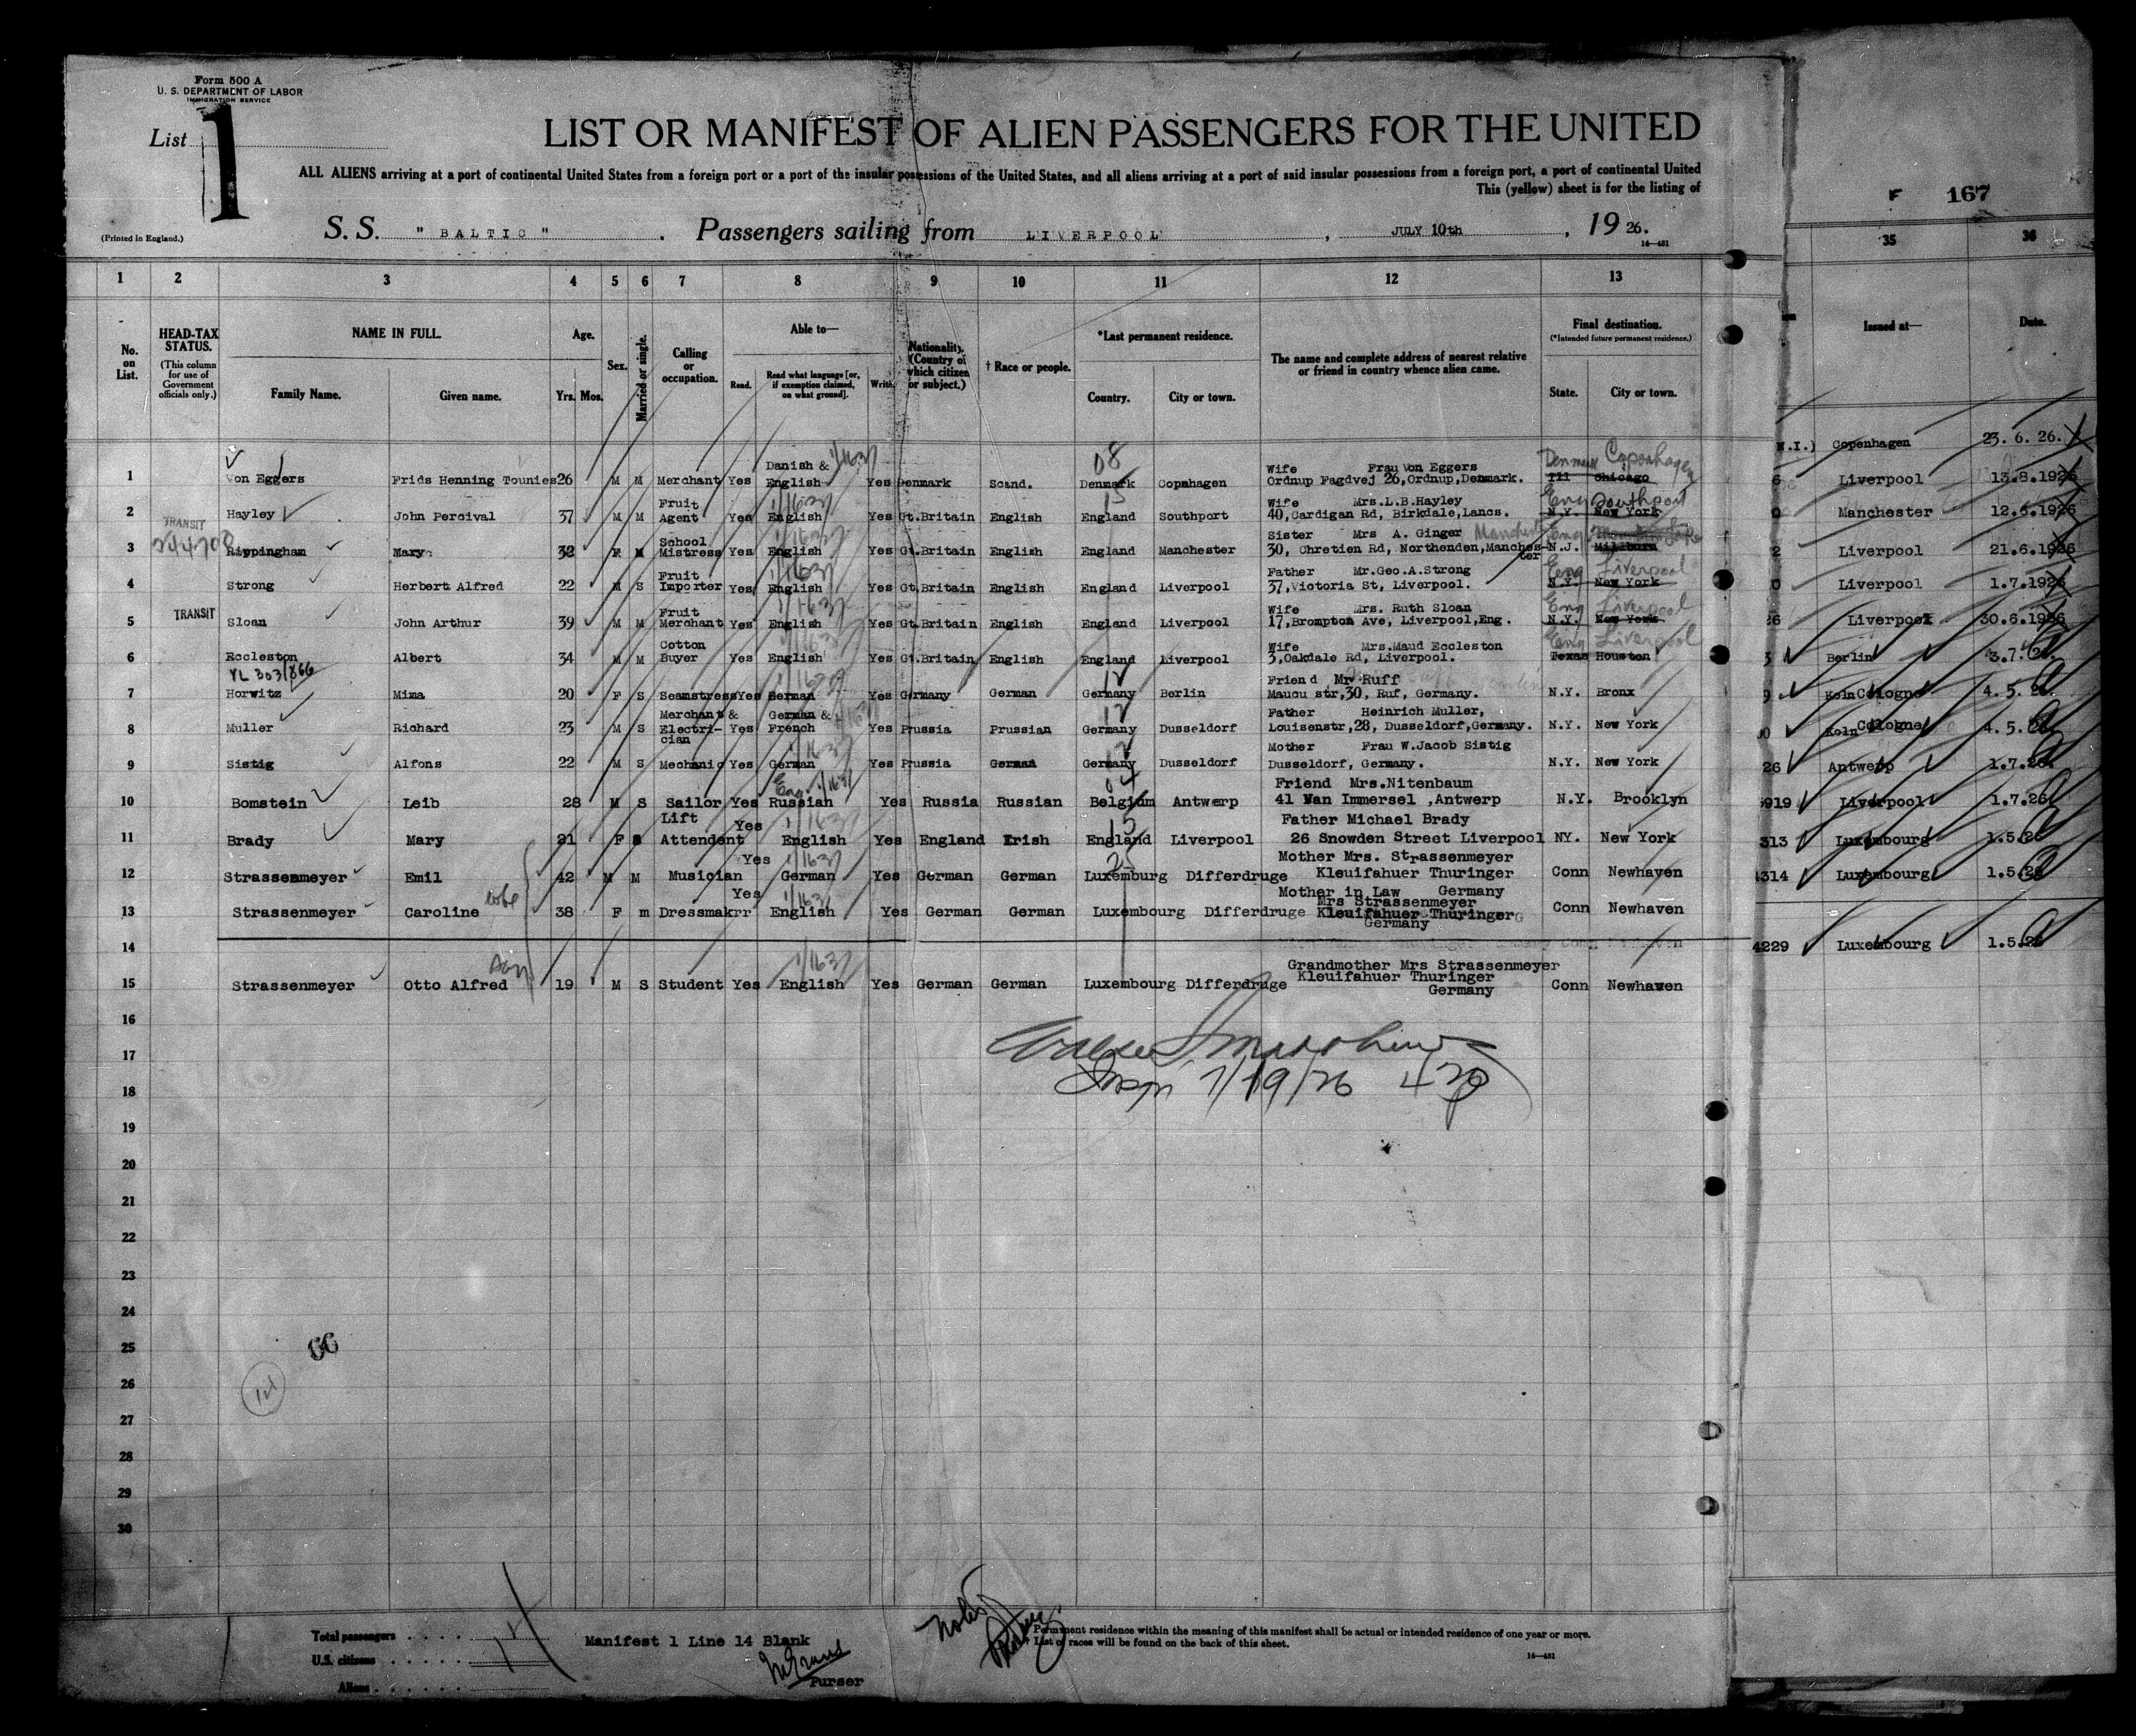 Form 500 A
U. S. DEPARTMENT OF LABOR
IMMIGRATION SERVICE
List 1
LIST OR MANIFEST OF ALIEN PASSENGERS FOR THE UNITED
ALL ALIENS arriving at a port of continental United States from a foreign port or a port of the insular possessions of the United States, and all aliens arriving at a port of said insular possessions from a foreign port, a port of continental United
This (yellow) sheet is for the listing of
F 167
(Printed in England.)
S. S. " BALTIC " . Passengers sailing from LIVERPOOL , JULY 10th , 19 26.
14—431
1 2 3 4 5 6 7 8 9 10 11 12 13 35 36
No. on List.
HEAD-TAX STATUS.
(This column for use of Government officials only.)
NAME IN FULL.
Family Name. Given name.
Age.
Yrs. Mos.
Sex.
Married or single.
Calling or occupation.
Able to—
Read. Read what language [or, if exemption claimed, on what ground]. Write.
Nationality. (Country of which citizen or subject.)
† Race or people.
*Last permanent residence.
Country. City or town.
The name and complete address of nearest relative or friend in country whence alien came.
Final destination.
(*Intended future permanent residence.)
State. City or town.
Issued at— Date.
N.I.) Copenhagen 23. 6. 26.
1 Von Eggers Frids Henning Tounies 26 M M Merchant Yes Danish & English 1/1637 Yes Denmark Scand. 08 Denmark Copnhagen Wife Frau Von Eggers Ordnup Fagdvej 26,Ordnup,Denmark. Ill Chicago Denmark Copenhagen
6 Liverpool 13.8.1926
2 Hayley John Percival 37 M M Fruit Agent Yes English 1/1637 Yes Gt.Britain English 15 England Southport Wife Mrs.L.B.Hayley 40,Cardigan Rd, Birkdale,Lancs. N.Y. New York Eng Southport
Manchester 12.6.1926
TRANSIT
3 Rippingham Mary 32 F M School Mistress Yes English 1/1637 Yes Gt.Britain English England Manchester Sister Mrs A. Ginger 30, Chretien Rd, Northenden,Manchester N.J. Millburn Eng
2 Liverpool 21.6.1926
4 Strong Herbert Alfred 22 M S Fruit Importer Yes English 1/1637 Yes Gt.Britain English England Liverpool Father Mr.Geo.A.Strong 37,Victoria St, Liverpool. N.Y. New York Eng Liverpool
0 Liverpool 1.7.1926
TRANSIT
5 Sloan John Arthur 39 M M Fruit Merchant Yes English 1/1637 Yes Gt.Britain English England Liverpool Wife Mrs. Ruth Sloan 17,Brompton Ave, Liverpool,Eng. N.Y. New York Eng Liverpool
26 Liverpool 30.6.1926
6 Eccleston Albert 34 M M Cotton Buyer Yes English 1/1637 Yes Gt.Britain English England Liverpool Wife Mrs.Maud Eccleston 3,Oakdale Rd, Liverpool. Texas Houston Eng Liverpool
Berlin 3.7.
VL 303/866
7 Horwitz Mima 20 F S Seamstress Yes German Yes Germany German 12 Germany Berlin Friend Mr Ruff Maucu str,30, Ruf, Germany. N.Y. Bronx
9 Koln Cologne 4. 5.
8 Muller Richard 23 M S Merchant & Electrician Yes German & French 1/1637 Yes Prussia Prussian 12 Germany Dusseldorf Father Heinrich Muller, Louisenstr,28, Dusseldorf,Germany. N.Y. New York
Koln Cologne 4. 5.
9 Sistig Alfons 22 M S Mechanic Yes German 1/1637 Yes Prussia German 12 Germany Dusseldorf Mother Frau W.Jacob Sistig Dusseldorf, Germany. N.Y. New York
26 Antwerp 1.7.26
10 Bomstein Leib 28 M S Sailor Yes Eng Russian 1/1637 Yes Russia Russian 04 Belgium Antwerp Friend Mrs.Nitenbaum 41 Van Immersel ,Antwerp N.Y. Brooklyn
5919 Liverpool 1.7.26
11 Brady Mary 21 F S Lift Attendent Yes English 1/1637 Yes England Irish 15 England Liverpool Father Michael Brady 26 Snowden Street Liverpool NY. New York
313 Luxembourg 1.5.26
12 Strassenmeyer Emil 42 M M Musician Yes German 1/1637 Yes German German 25 Luxemburg Differdruge Mother Mrs. Strassenmeyer Kleuifahuer Thuringer Conn Newhaven
4314 Luxembourg 1.5.26
13 Strassenmeyer Caroline wife 38 F m Dressmakrr Yes English 1/1637 Yes German German Luxembourg Differdruge Mother in Law Germany Mrs Strassenmeyer Kleuifahuer Thuringer Germany Conn Newhaven
14
4229 Luxembourg 1.5.26
15 Strassenmeyer Otto Alfred son 19 M S Student Yes English 1/1637 Yes German German Luxembourg Differdruge Grandmother Mrs Strassenmeyer Kleuifahuer Thuringer Germany Conn Newhaven
16
17
Insp 7/19/26
18
19
20
21
22
23
24
25
26
27
28
29
30
Total passengers
U.S. citizens
Aliens
14
Manifest 1 Line 14 Blank
Purser
* Permanent residence within the meaning of this manifest shall be actual or intended residence of one year or more.
† List of races will be found on the back of this sheet.
14—431